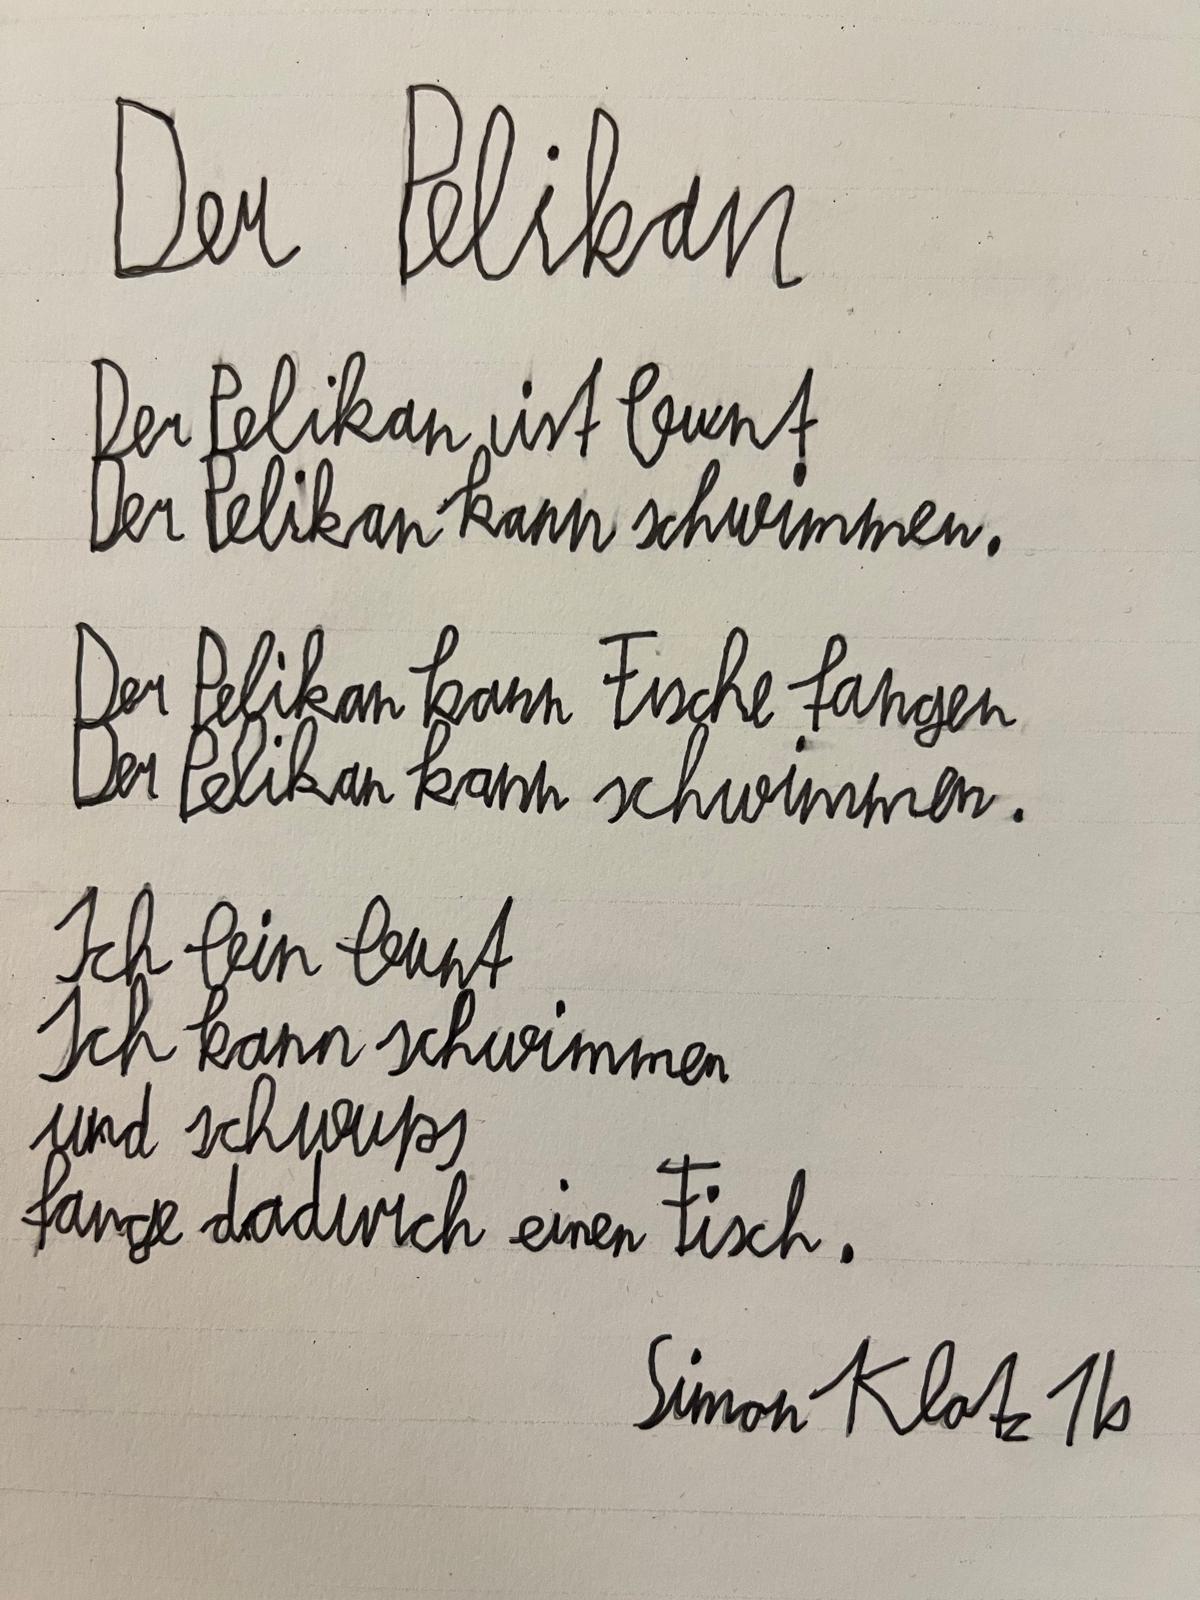 Der Pelikan
Der Pelikan ist bunt
Der Pelikan kann schwimmen.
Der Pelikan kann Fische fangen
Der Pelikan kann schwimmen.
Ich bin bunt
Ich kann schwimmen
und schwups
fange dadurch einen Fisch.
Simon Klotz 1b